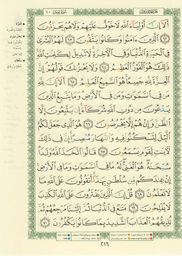 أَلَآ إِنَّ أَوْلِيَآءَ ٱللَّهِ لَا خَوْفٌ عَلَيْهِمْ وَلَا هُمْ يَحْزَنُونَ
٦٢ ٱلَّذِينَ ءَامَنُواْ وَكَانُواْ يَتَّقُونَ ٦٣ لَهُمُ ٱلْبُشْرَىٰ
فِى ٱلْحَيَوٰةِ ٱلدُّنْيَا وَفِى ٱلْأَخِرَةِ لَا تَبْدِيلَ لِكَلِمَٰتِ ٱللَّهِ
ذَٰلِكَ هُوَ ٱلْفَوْزُ ٱلْعَظِيمُ ٦٤ وَلَا يَحْزُنكَ قَوْلُهُمْ إِنَّ
ٱلْعِزَّةَ لِلَّهِ جَمِيعًا هُوَ ٱلسَّمِيعُ ٱلْعَلِيمُ ٦٥ أَلَآ إِنَّ لِلَّهِ مَن
فِى ٱلسَّمَٰوَٰتِ وَمَن فِى ٱلْأَرْضِ وَمَا يَتَّبِعُ ٱلَّذِينَ
يَدْعُونَ مِن دُونِ ٱللَّهِ شُرَكَآءَ إِن يَتَّبِعُونَ إِلَّا
ٱلظَّنَّ وَإِنْ هُمْ إِلَّا يَخْرُصُونَ ٦٦ هُوَ ٱلَّذِى جَعَلَ لَكُمُ
ٱلَّيْلَ لِتَسْكُنُواْ فِيهِ وَٱلنَّهَارَ مُبْصِرًا إِنَّ فِى ذَٰلِكَ
لَأَيَٰتٍ لِّقَوْمٍ يَسْمَعُونَ ٦٧ قَالُواْ ٱتَّخَذَ ٱللَّهُ وَلَدًا
سُبْحَٰنَهُۥ هُوَ ٱلْغَنِىُّ لَهُۥ مَا فِى ٱلسَّمَٰوَٰتِ وَمَا فِى ٱلْأَرْضِ
إِنْ عِندَكُم مِّن سُلْطَٰنٍۭ بِهَٰذَآ أَتَقُولُونَ عَلَى ٱللَّهِ مَا
لَا تَعْلَمُونَ ٦٨ قُلْ إِنَّ ٱلَّذِينَ يَفْتَرُونَ عَلَى ٱللَّهِ ٱلْكَذِبَ
لَا يُفْلِحُونَ ٦٩ مَتَٰعٌ فِى ٱلدُّنْيَا ثُمَّ إِلَيْنَا مَرْجِعُهُمْ ثُمَّ
نُذِيقُهُمُ ٱلْعَذَابَ ٱلشَّدِيدَ بِمَا كَانُواْ يَكْفُرُونَ ٧٠
٢١٦